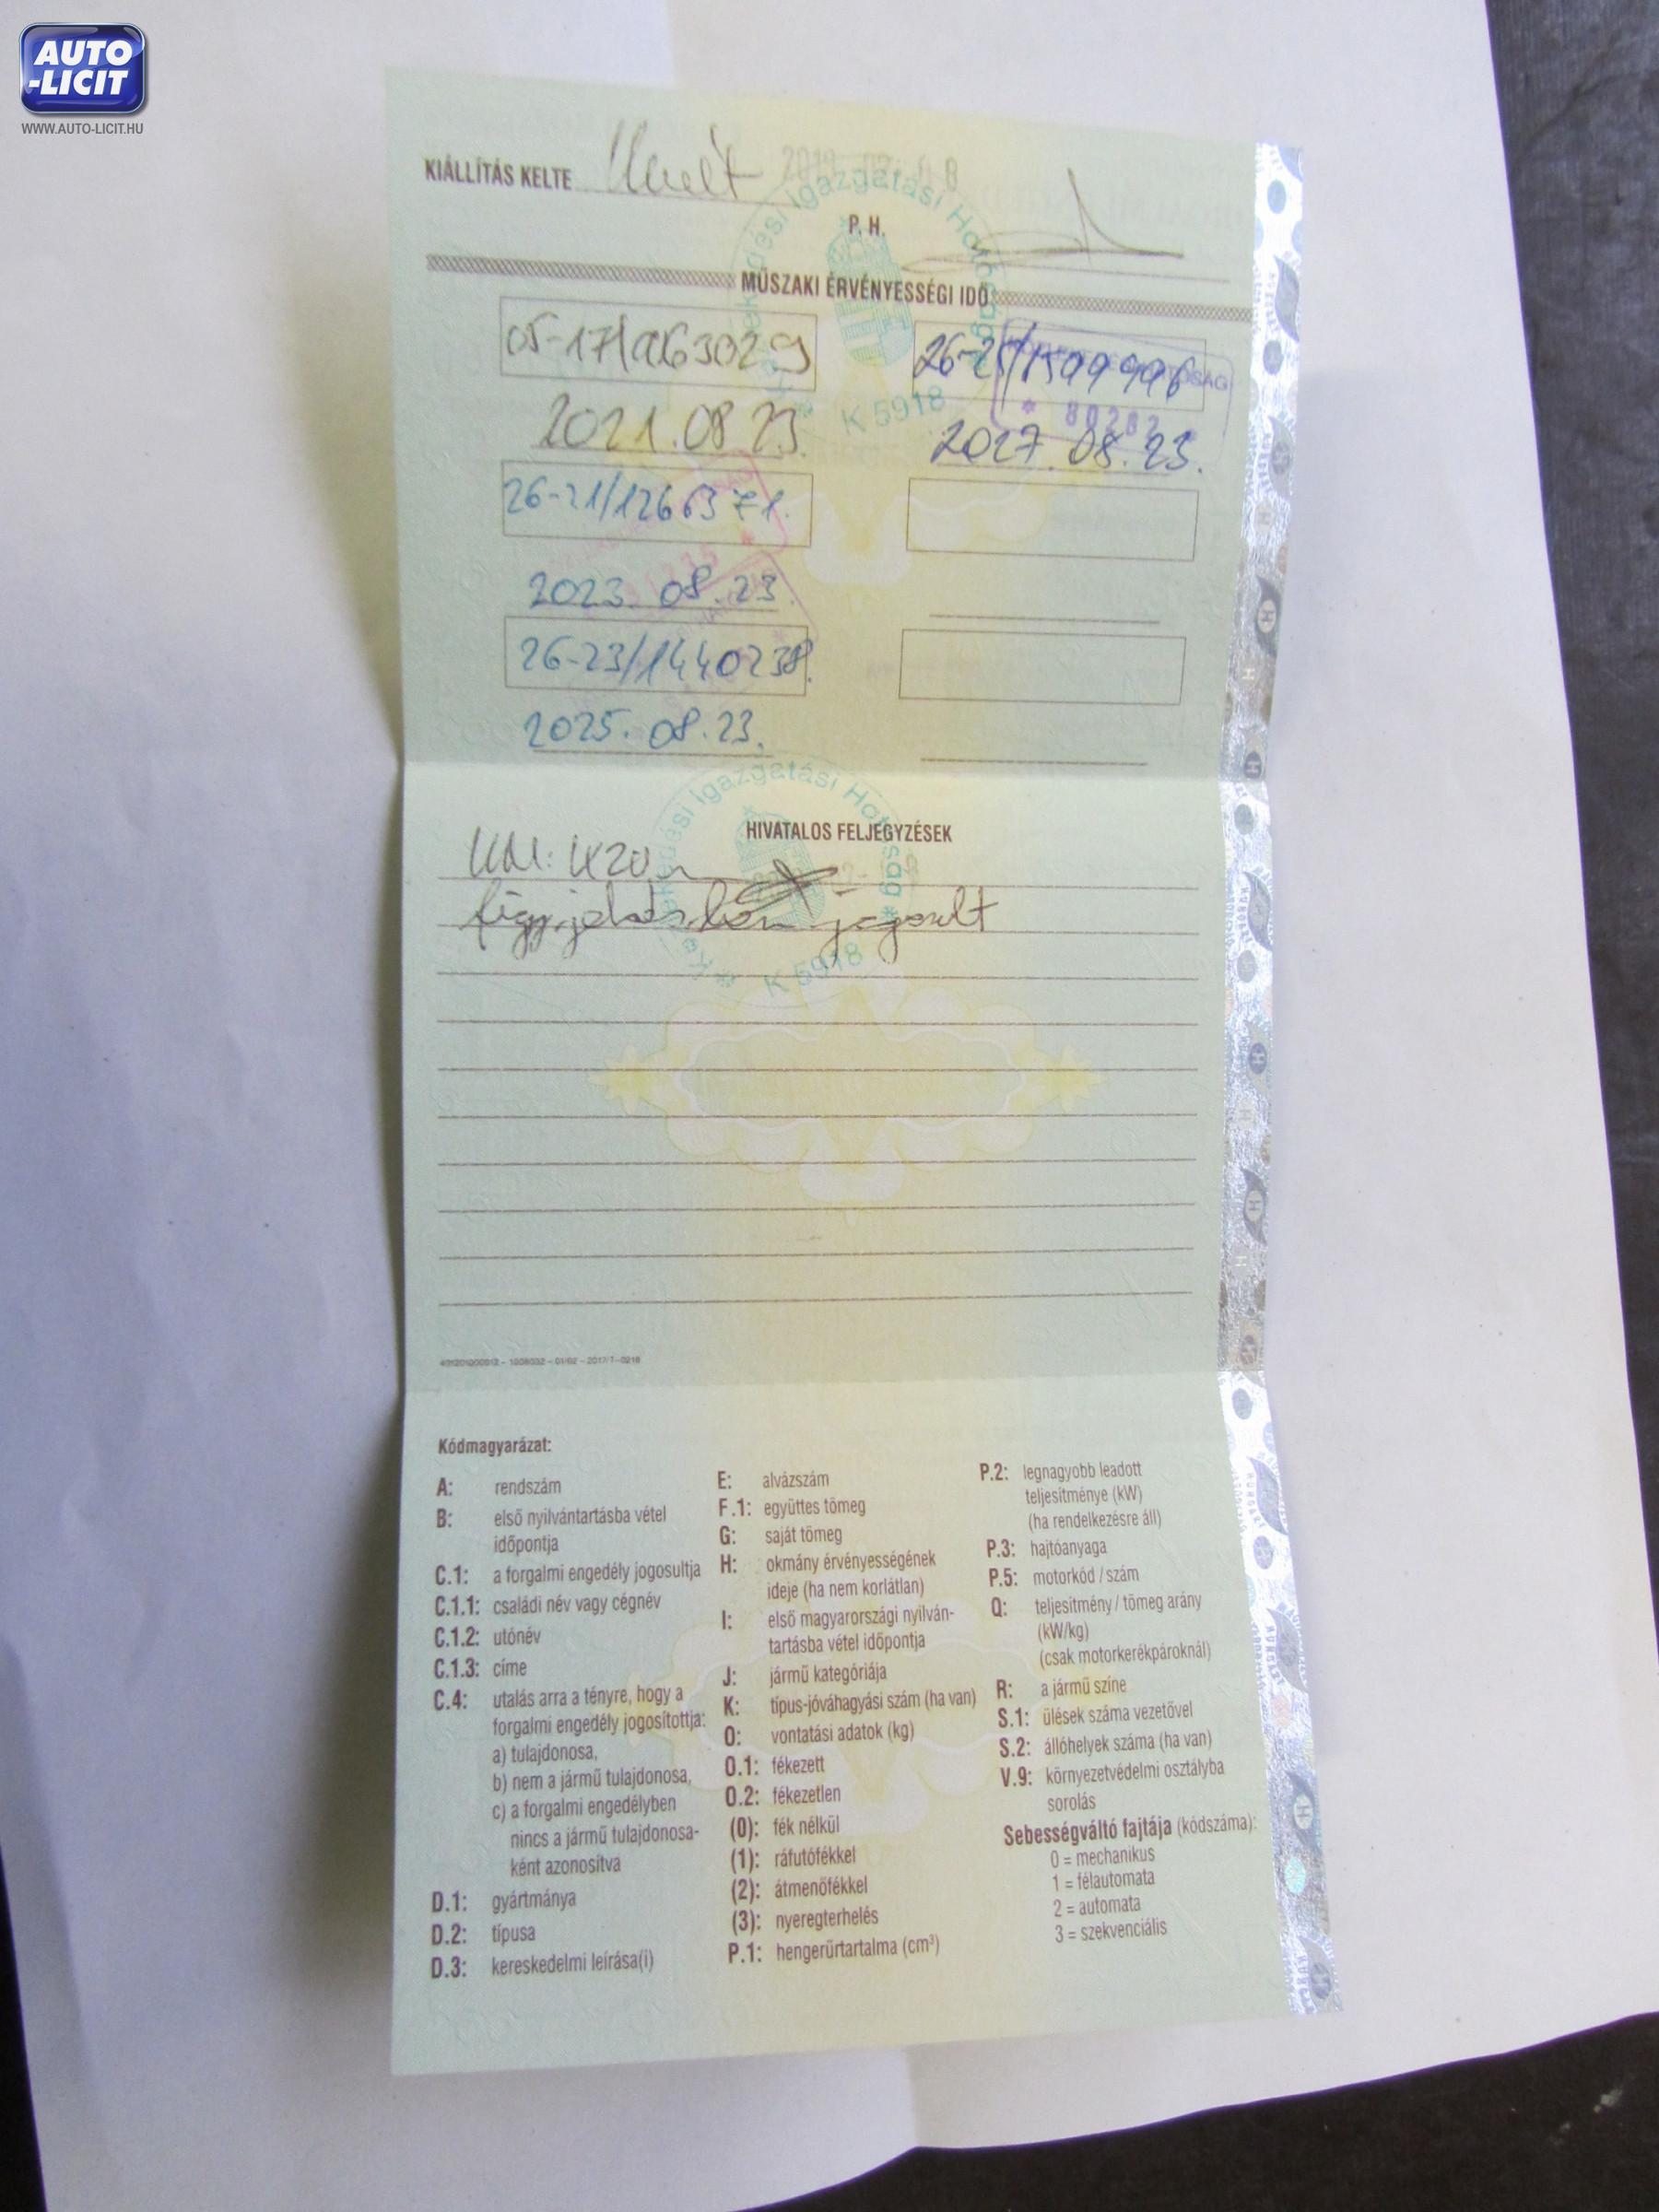 AUTO
-LICIT
WWW.AUTO-LICIT.HU
KIÁLLÍTÁS KELTE
P. H.
MŰSZAKI ÉRVÉNYESSÉGI IDŐ
2021.08.23.
2027.08.23.
K 5918
26-21/1266371.
2023.08.23.
26-23/1440238.
2025.08.23.
HIVATALOS FELJEGYZÉSEK
jogosult
K 5918
Kódmagyarázat:
A: rendszám
B: első nyilvántartásba vétel
időpontja
C.1: a forgalmi engedély jogosultja
C.1.1: családi név vagy cégnév
C.1.2: utónév
C.1.3: címe
C.4: utalás arra a tényre, hogy a
forgalmi engedély jogosítottja:
a) tulajdonosa,
b) nem a jármű tulajdonosa,
c) a forgalmi engedélyben
nincs a jármű tulajdonosa-
ként azonosítva
D.1: gyártmánya
D.2: típusa
D.3: kereskedelmi leírása(i)
E: alvázszám
F.1: együttes tömeg
G: saját tömeg
H: okmány érvényességének
ideje (ha nem korlátlan)
I: első magyarországi nyilván-
tartásba vétel időpontja
J: jármű kategóriája
K: típus-jóváhagyási szám (ha van)
O: vontatási adatok (kg)
O.1: fékezett
O.2: fékezetlen
(0): fék nélkül
(1): ráfutófékkel
(2): átmenőfékkel
(3): nyeregterhelés
P.1: hengerűrtartalma (cm³)
P.2: legnagyobb leadott
teljesítménye (kW)
(ha rendelkezésre áll)
P.3: hajtóanyaga
P.5: motorkód / szám
Q: teljesítmény / tömeg arány
(kW/kg)
(csak motorkerékpároknál)
R: a jármű színe
S.1: ülések száma vezetővel
S.2: állóhelyek száma (ha van)
V.9: környezetvédelmi osztályba
sorolás
Sebességváltó fajtája (kódszáma):
0 = mechanikus
1 = félautomata
2 = automata
3 = szekvenciális